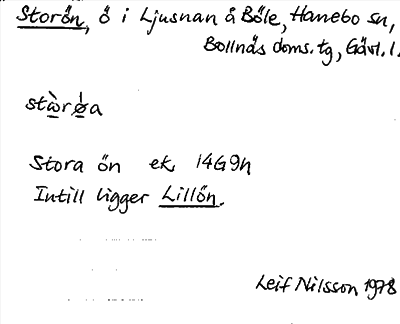 Storön, ö i Ljusnan å Böle, Hanebo sn,
Bollnäs doms. tg, Gävl. l.
Stora ön ek. 14G9h
Intill ligger Lillön.
Leif Nilsson 1978